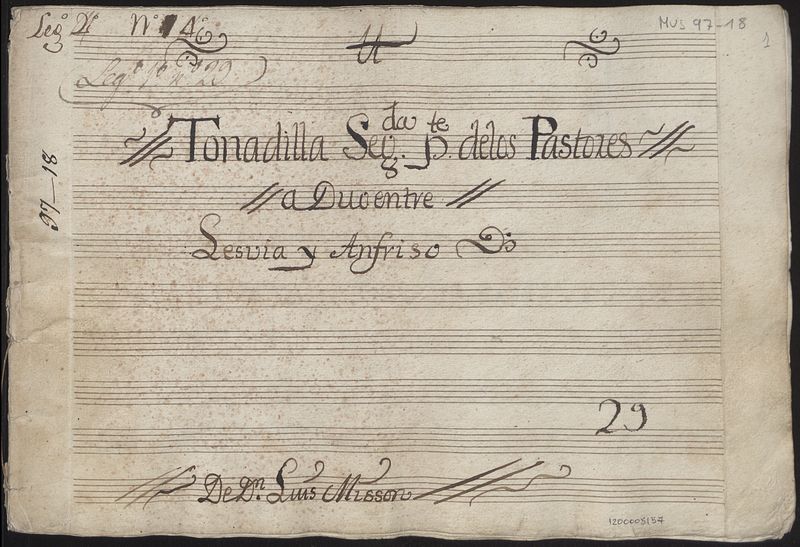 Leg.º 2º Nº 4º
MUS 97-18
1
Leg.º 1º nº 23
97-18
Tonadilla Seg.da p.te delos Pastores
a Duo entre
Lesvia y Anfriso
29
De Dn. Luis Misson
1200008157